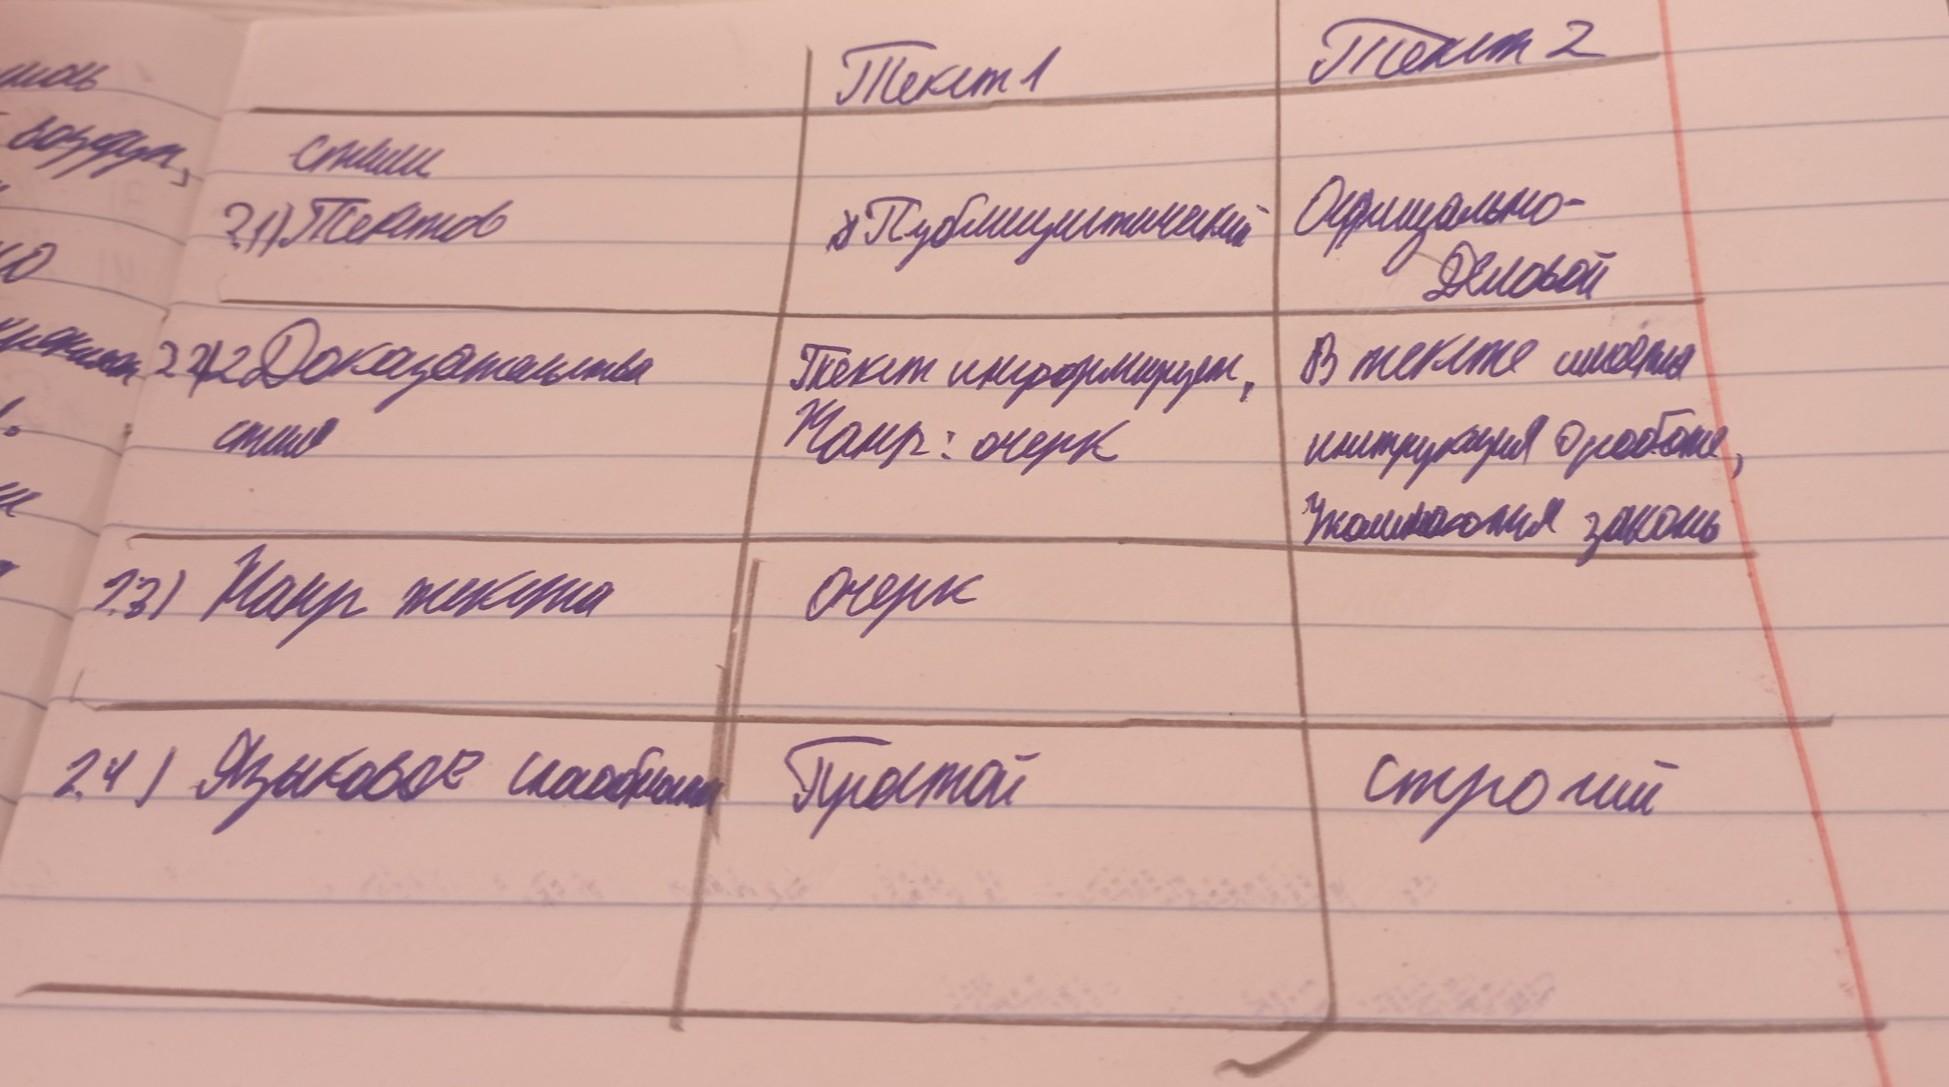 Текст 1
Текст 2
стили
2.1) Текстов
Публицистический
Официально-
Деловой
2.2) Доказательства
стиля
Текст информирует,
Жанр: очерк
В тексте имеется
инструкция о работе,
Упоминаются законы
2.3) Жанр текста
очерк
2.4) Языковое
Простой
строгий
воздух,